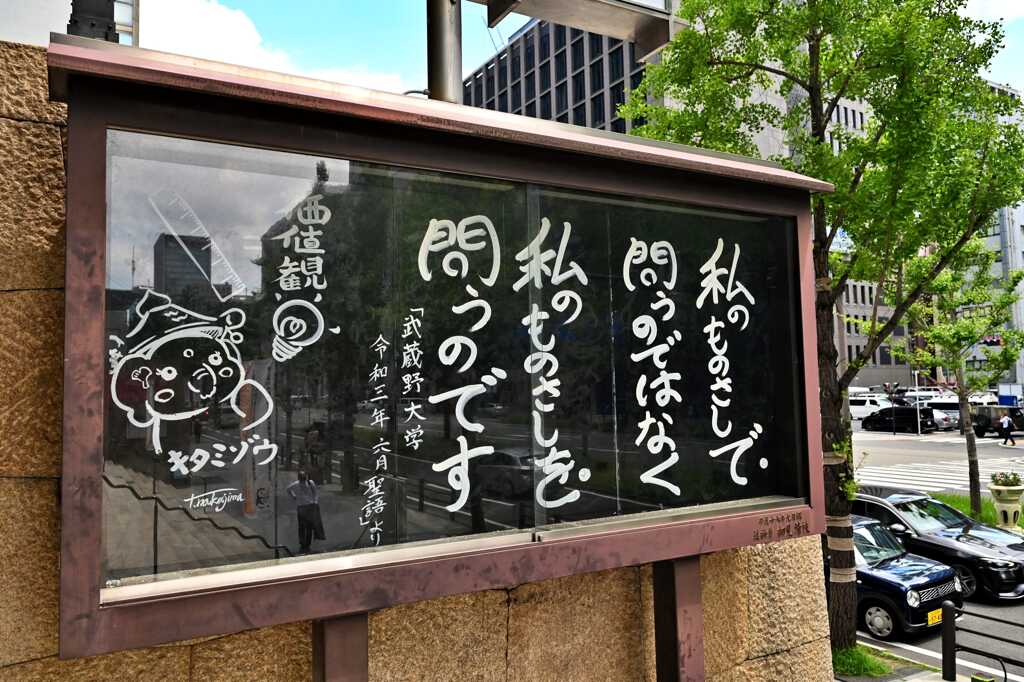 私の
ものさしで、
問うのではなく
私の
ものさしを、
問うのです
「武蔵野大学
令和三年 六月 聖語」より
価値観
キタミゾウ
T.nakajima